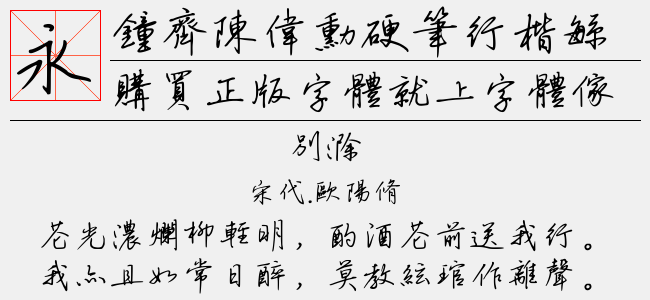 永
鐘齊陳偉勳硬筆行楷繁
購買正版字體就上字體傢
別滁
宋代.歐陽脩
花光濃爛柳輕明，酌酒花前送我行。
我亦且如常日醉，莫教絃琯作離聲。